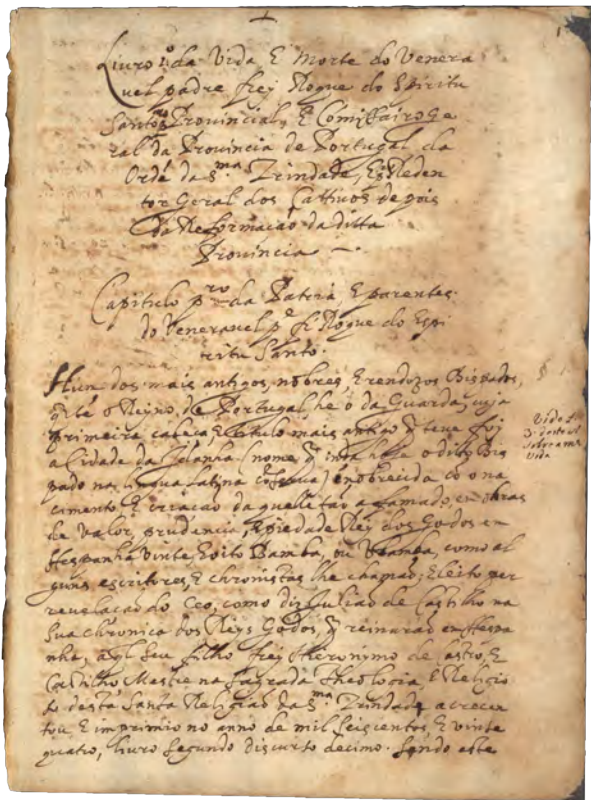 Livro 1º da Vida E Morte do Venera
uel padre frey Roque do Spiritu
Santo Prouincial, E Comissairo ge
ral da Prouincia de Portugal da
Ordẽ da S.ma Trindade, E Reden
tor Geral dos Cattiuos depois
da Reformação da ditta
Prouincia
Capitulo pro da Patria, E parentes
do Venerauel pe fr Roque do Espi
ritu Santo.
Hum dos mais antigos, nobres, E rendozos Bispados,
q̃ tẽ o Reyno de Portugal, he o da Guarda, cuja
primeira cabeca, E titulo mais antigo q̃ teue foj
a Cidade da Idanha (nome q̃ inda hoje o dito Bis
pado na lingua latina) ẽnobrecida cõ o na
cimento, E criacão daquelle tão afamado, em obras
de valor, prudencia, E piedade Rey dos Godos em
Hespanha vinte E oito Bamba, ou Vbamba, como al
guns escritores, E chronistas lhe chamão, Eleito per
reuelacão do Ceo, como diz Julião de Castilho na
sua chronica dos Reys Godos, q̃ reinarão em Hespa
nha, a q̃l seu filho frey Hieronimo de Castro, E
Castilho Mestre na sagrada theologia, E Religio
so desta Santa Religião da S.ma Trindade acrecen
tou, E imprimio no anno de mil seiscentos, E vinte
quatro, liuro segundo discurso decimo. Sendo este